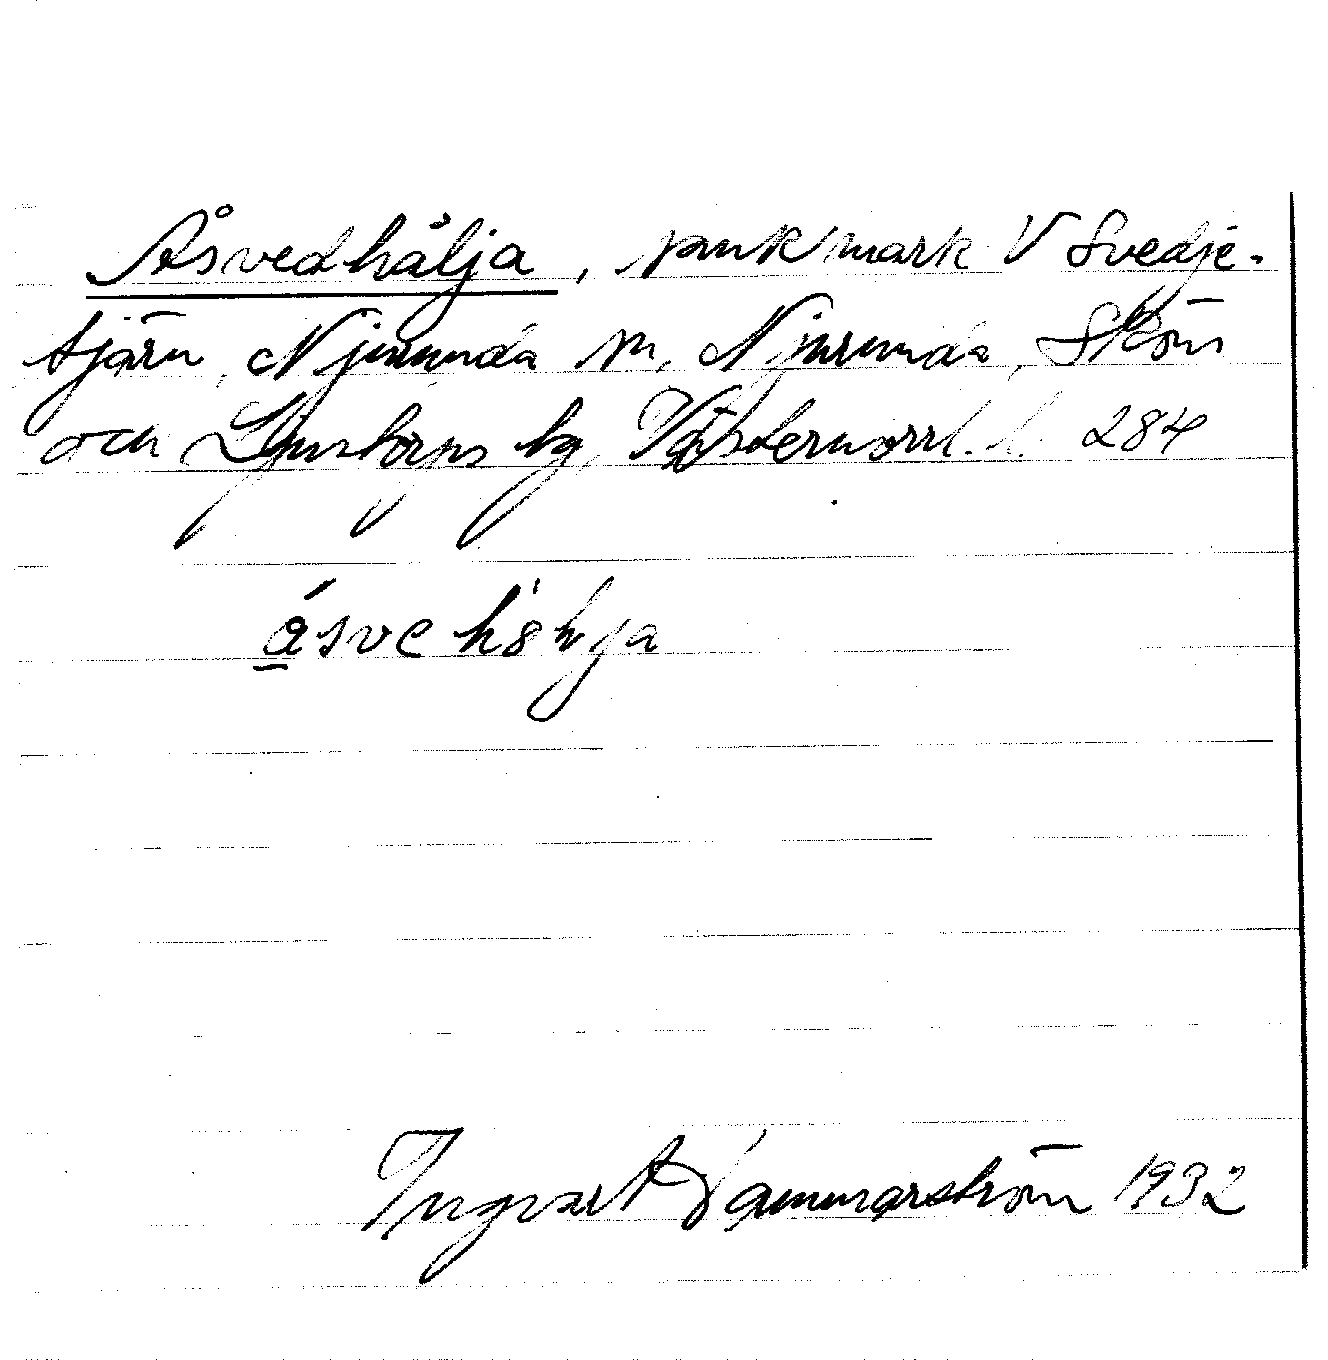 Åsvedhålja, sank mark V Svedje-
tjärn, Njurunda sn, Njurunda, Sköns
och Ljustorps tg, Västernorrl. l. 284
Ingvart Hammarström 1932